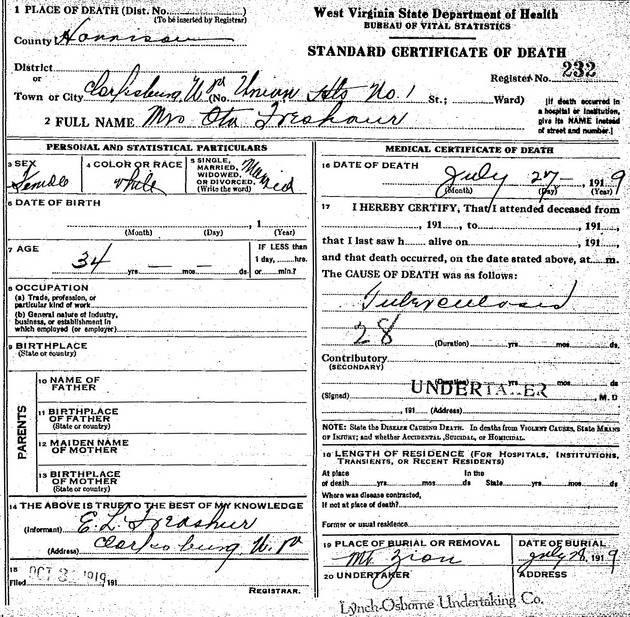 1 PLACE OF DEATH (Dist. No. )
(To be inserted by Registrar)
County Harrison
District
or
Town or City Clarksburg W. Va (No. Union Hts No. 1 St.; Ward)
2 FULL NAME Mrs Ota Treshour
West Virginia State Department of Health
BUREAU OF VITAL STATISTICS
STANDARD CERTIFICATE OF DEATH
Register No. 232
[If death occurred in
a hospital or institution,
give its NAME instead
of street and number.]
PERSONAL AND STATISTICAL PARTICULARS
3 SEX
Female
4 COLOR OR RACE
white
5 SINGLE,
MARRIED,
WIDOWED,
OR DIVORCED.
(Write the word)
Married
6 DATE OF BIRTH
, 1
(Month) (Day) (Year)
7 AGE
34 yrs — mos — ds
IF LESS than
1 day, hrs.
or min.?
8 OCCUPATION
(a) Trade, profession, or
particular kind of work
(b) General nature of industry,
business, or establishment in
which employed (or employer)
9 BIRTHPLACE
(State or country)
PARENTS
10 NAME OF
FATHER
11 BIRTHPLACE
OF FATHER
(State or country)
12 MAIDEN NAME
OF MOTHER
13 BIRTHPLACE
OF MOTHER
(State or country)
14 THE ABOVE IS TRUE TO THE BEST OF MY KNOWLEDGE
(Informant) E. L. Trashur
(Address) Clarksburg W. Va
15
Filed OCT 3 1919 191
REGISTRAR.
MEDICAL CERTIFICATE OF DEATH
16 DATE OF DEATH
July 27— , 191 9
(Month) (Day) (Year)
17 I HEREBY CERTIFY, That I attended deceased from
, 191 , to , 191 ,
that I last saw h alive on , 191 ,
and that death occurred, on the date stated above, at m.
The CAUSE OF DEATH was as follows:
Tuberculosis
28
(Duration) yrs mos ds
Contributory
(SECONDARY)
(Duration) yrs mos ds
(Signed) UNDERTAKER , M. D
, 191 (Address)
NOTE: State the DISEASE CAUSING DEATH. In deaths from VIOLENT CAUSES, State MEANS
OF INJURY; and whether ACCIDENTAL, SUICIDAL, or HOMICIDAL.
18 LENGTH OF RESIDENCE (FOR HOSPITALS, INSTITUTIONS,
TRANSIENTS, OR RECENT RESIDENTS)
At place In the
of death yrs mos ds State yrs mos ds
Where was disease contracted,
If not at place of death?
Former or usual residence
19 PLACE OF BURIAL OR REMOVAL
Mt. Zion
DATE OF BURIAL
July 28, 191 9
20 UNDERTAKER
ADDRESS
Lynch-Osborne Undertaking Co.